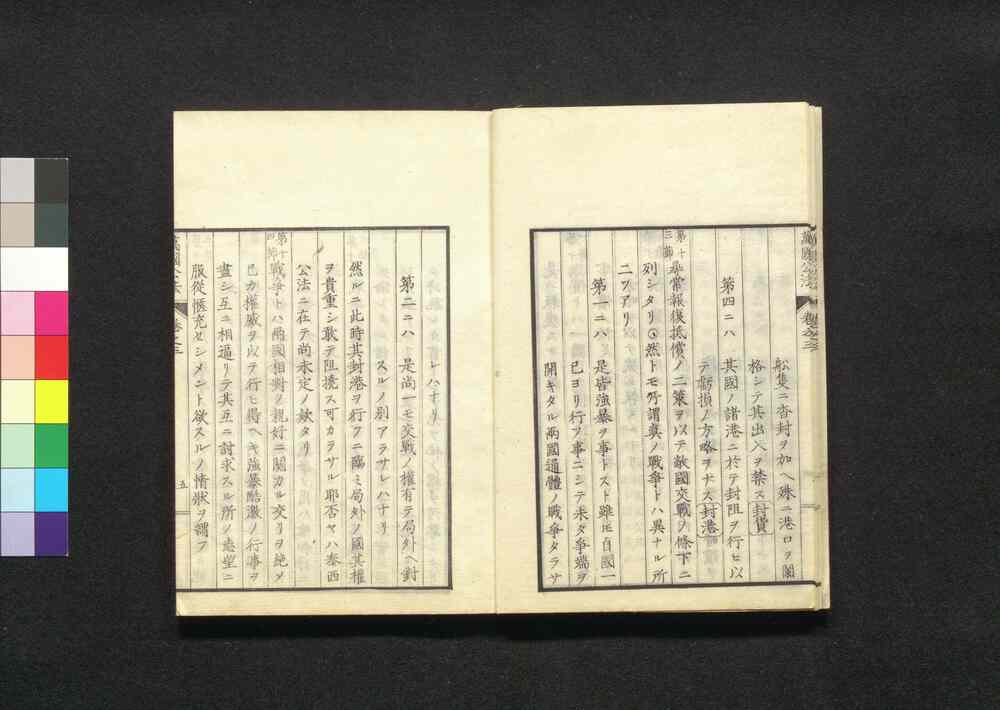 舩隻ニ沓封ヲ加ヘ殊ニ港口ヲ闌
格シテ其出入ヲ禁ス 封貨
第四ニハ 其國ノ諸港ニ於テ封阻ヲ行ヒ以
テ虧損ノ方略ヲナス 封港
第十三節 尋常報復抵償ノ二策ヲ以テ敵國交戰ノ條下ニ
列シタリ然トモ所謂真ノ戰爭トハ異ナル所
二ツアリ
第一ニハ 是皆強暴ヲ事トスト雖トモ自國一
已ヨリ行フ事ニシテ未タ爭端ヲ
開キタル兩國通體ノ戰爭タラサ
萬國公法 卷之三
レハナリ
第二ニハ 是尚一モ交戰ノ權有テ局外ヘ對
スルノ別アラサレハナリ
然ルニ此時其封港ヲ行フニ臨ミ局外ノ國其權
ヲ貴重シ敢テ阻撓ス可カラサル耶否ヤハ泰西
公法ニ在テ尚未定ノ欵タリ
第十四節 戰爭トハ兩國相對シ親好ニ關カル交リヲ絶メ
已カ權威ヲ以テ行ヒ得ヘキ強暴酷激ノ行事ヲ
盡シ互ニ相逼リテ其互ニ討求スル所ノ志望ニ
服從愜充セシメント欲スルノ情狀ヲ謂フ
萬國公法 卷之三 五